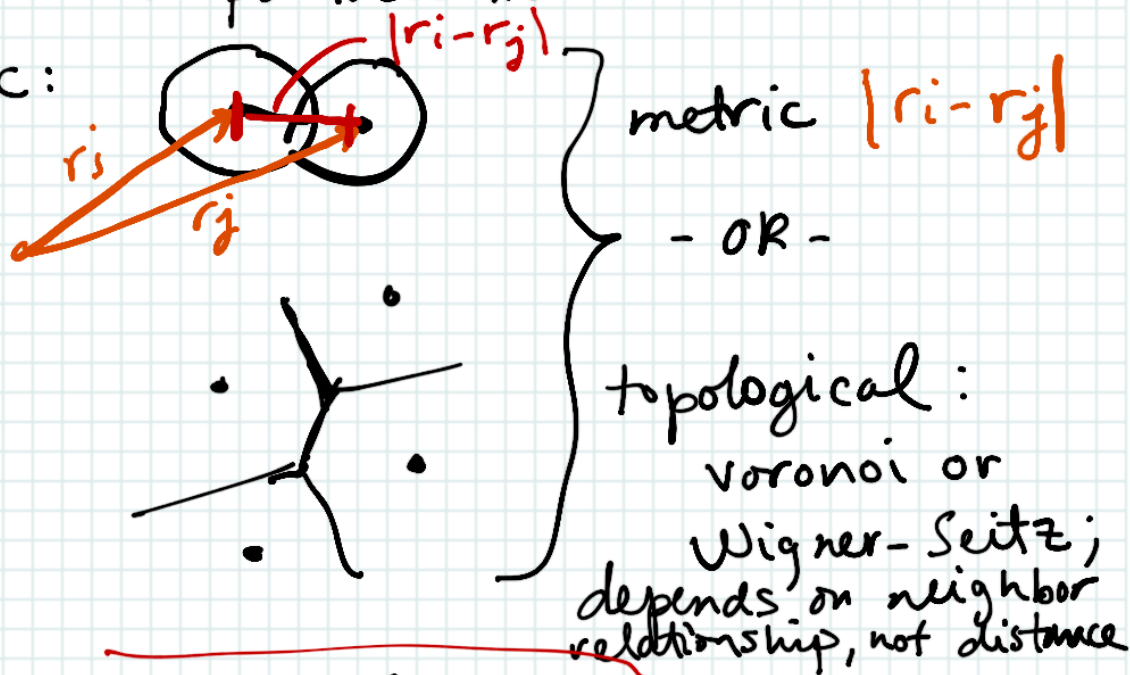 |ri-rj|
c:
metric |ri-rj|
ri
rj
- OR -
topological:
voronoi or
Wigner-Seitz;
depends on neighbor
relationship, not distance